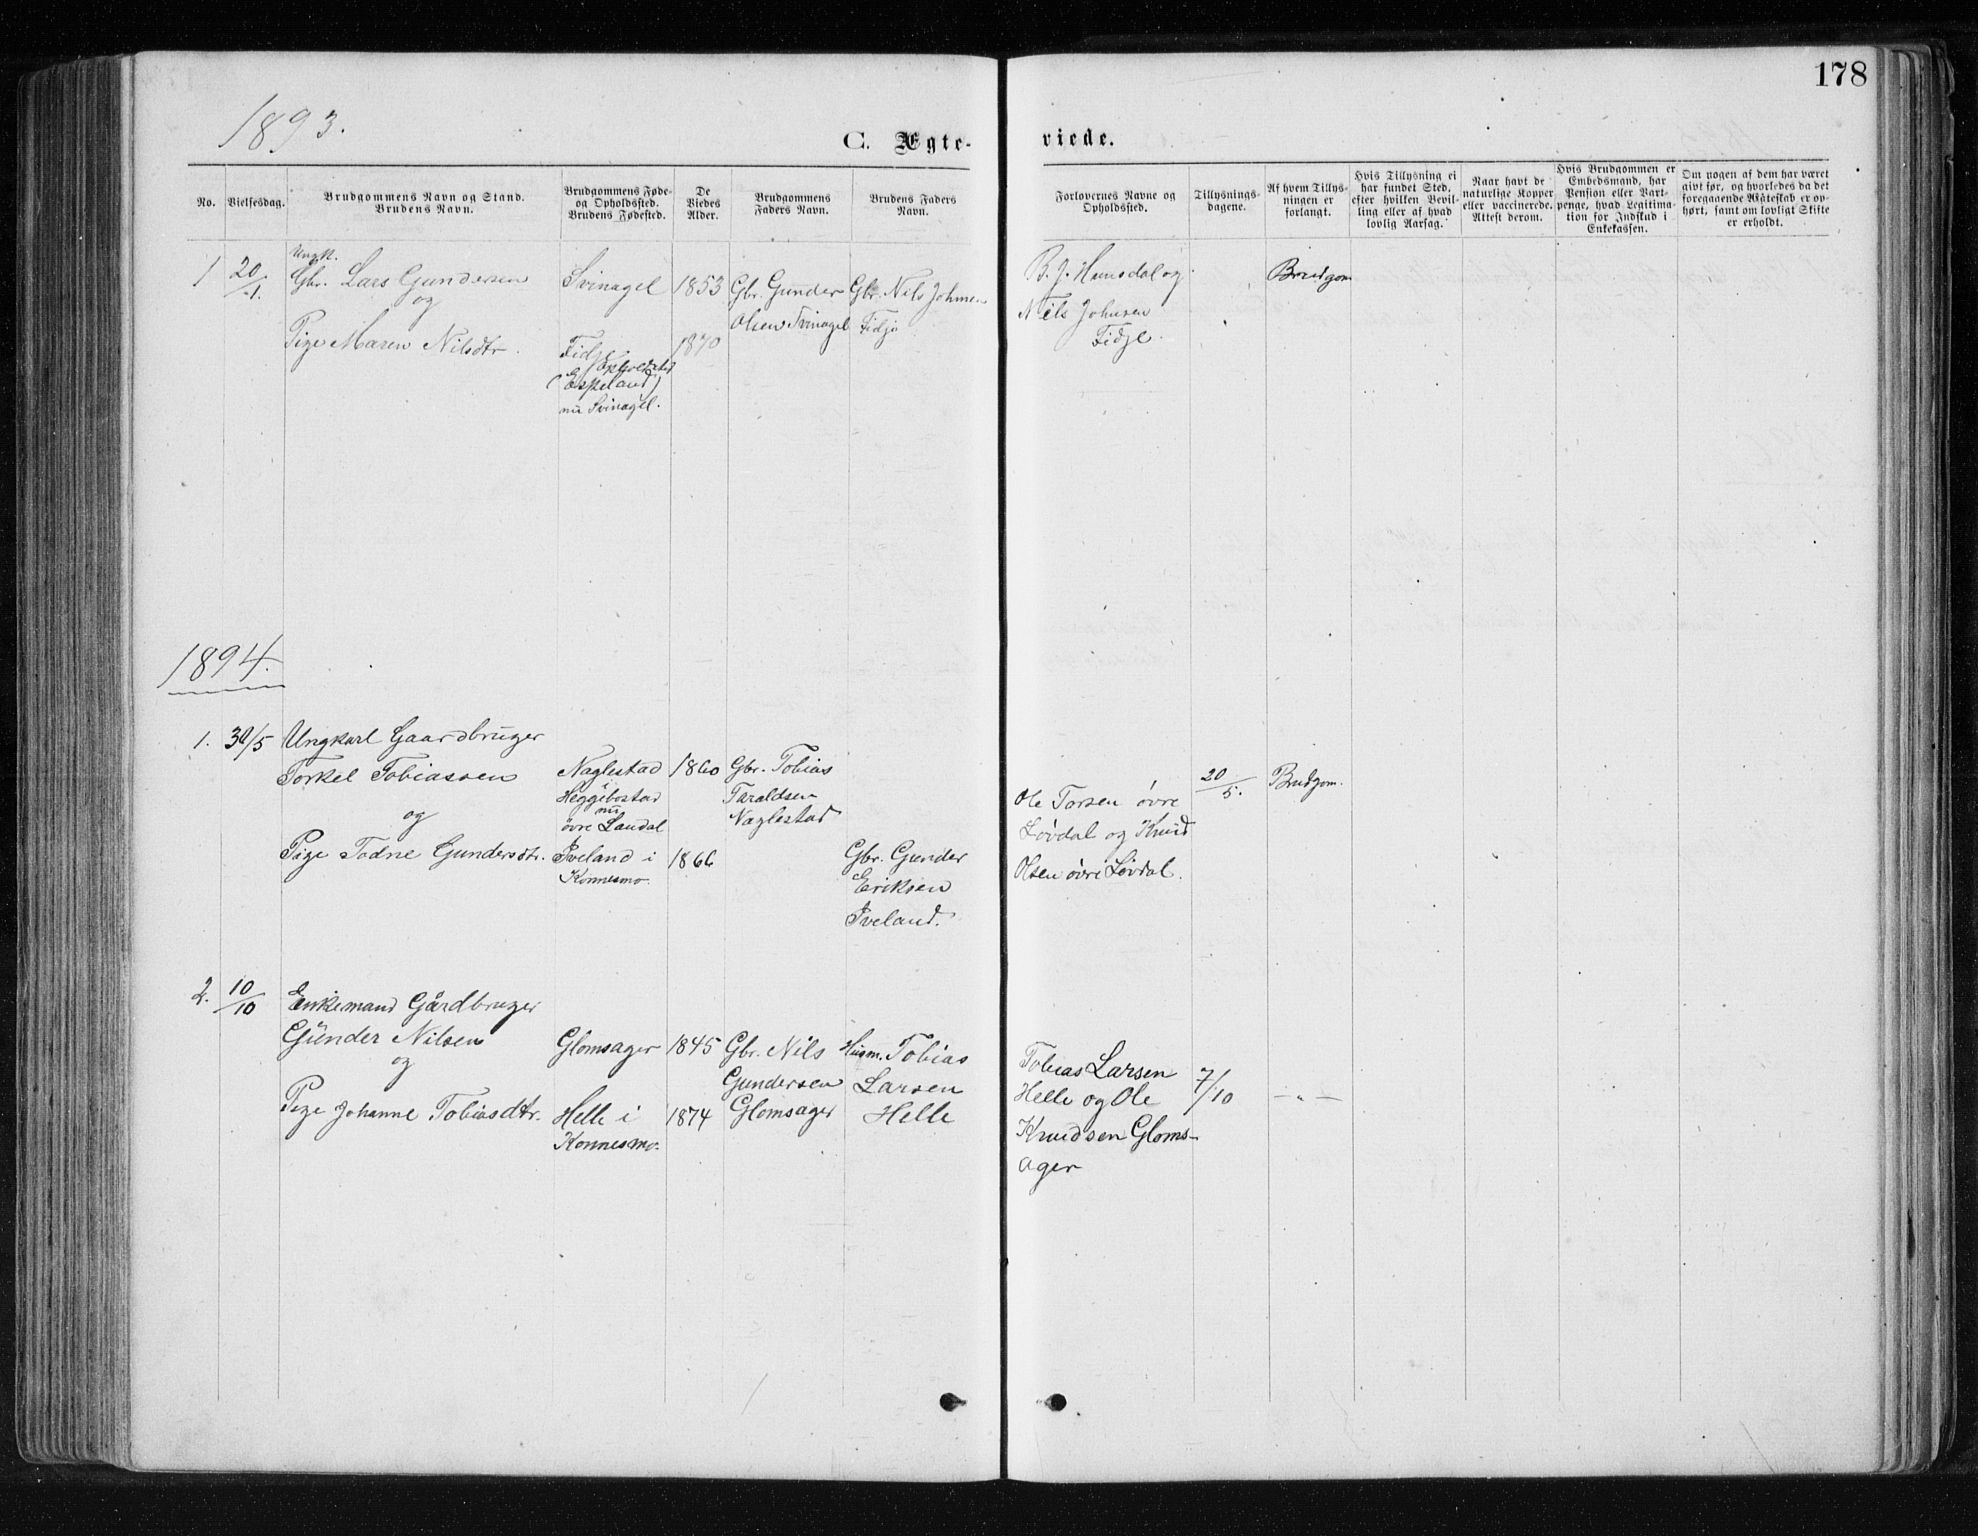 178
1893.
C. Ægte-
viede.
No.
Vielsesdag.
Brudgommens Navn og Stand.
Brudens Navn.
Brudgommens Føde-
og Opholdssted.
Brudens Fødested.
De
Viedes
Alder.
Brudgommens
Faders Navn.
Brudens Faders
Navn.
Forlovernes Navne og
Opholdssted.
Tillysnings-
dagene.
Af hvem Tillys-
ningen er
forlangt.
Hvis Tillysning ei
har fundet Sted,
efter hvilken Bevil-
ling eller af hvad
lovlig Aarsag.
Naar havt de
naturlige Kopper
eller vaccinerede.
Attest derom.
Hvis Brudgommen er
Embedsmand, har
Pension eller Vart-
penge, hvad Legitima-
tion for Indskud i
Enkekassen.
Om nogen af dem har været
givt før, og hvorledes da det
foregaaende Ægteskab er op-
hørt, samt om lovligt Skifte
er erholdt.
1 20/1.
Ungk.
Gbr. Lars Gundersen
og
Pige Maren Nilsdtr.
Svinagel
Fidje
(Espeland)
nu Svinagel.
1853
1870
Gbr. Gunder
Olsen Svinagel
Gbr. Nils Johnsen
Fidje
B. J. Homsdal og
Nils Johnsen
Fidje.
Brudgom
1894.
1. 30/5 Ungkarl Gaardbruger
Torkel Tobiassen
og
Pige Todne Gundersdtr.
Naglestad
Heggibostad
nu
øvre Laudal
Iveland i
Konnesmo.
1860
1866
Gbr. Tobias
Taraldsen
Naglestad
Gbr. Gunder
Eriksen
Iveland.
Ole Torsen øvre
Løvdal og Knud
Olsen øvre Løvdal.
20/5.
Brudgom.
2. 10/10 Enkemand Gårdbruger
Gunder Nilsen
og
Pige Johanne Tobiasdtr.
Glomsager
Helle i
Konnesmo.
1845
1874
Gbr. Nils
Gundersen
Glomsager
Husm. Tobias
Larsen
Helle
Tobias Larsen
Helle og Ole
Knudsen Gloms-
ager
7/10
—„—